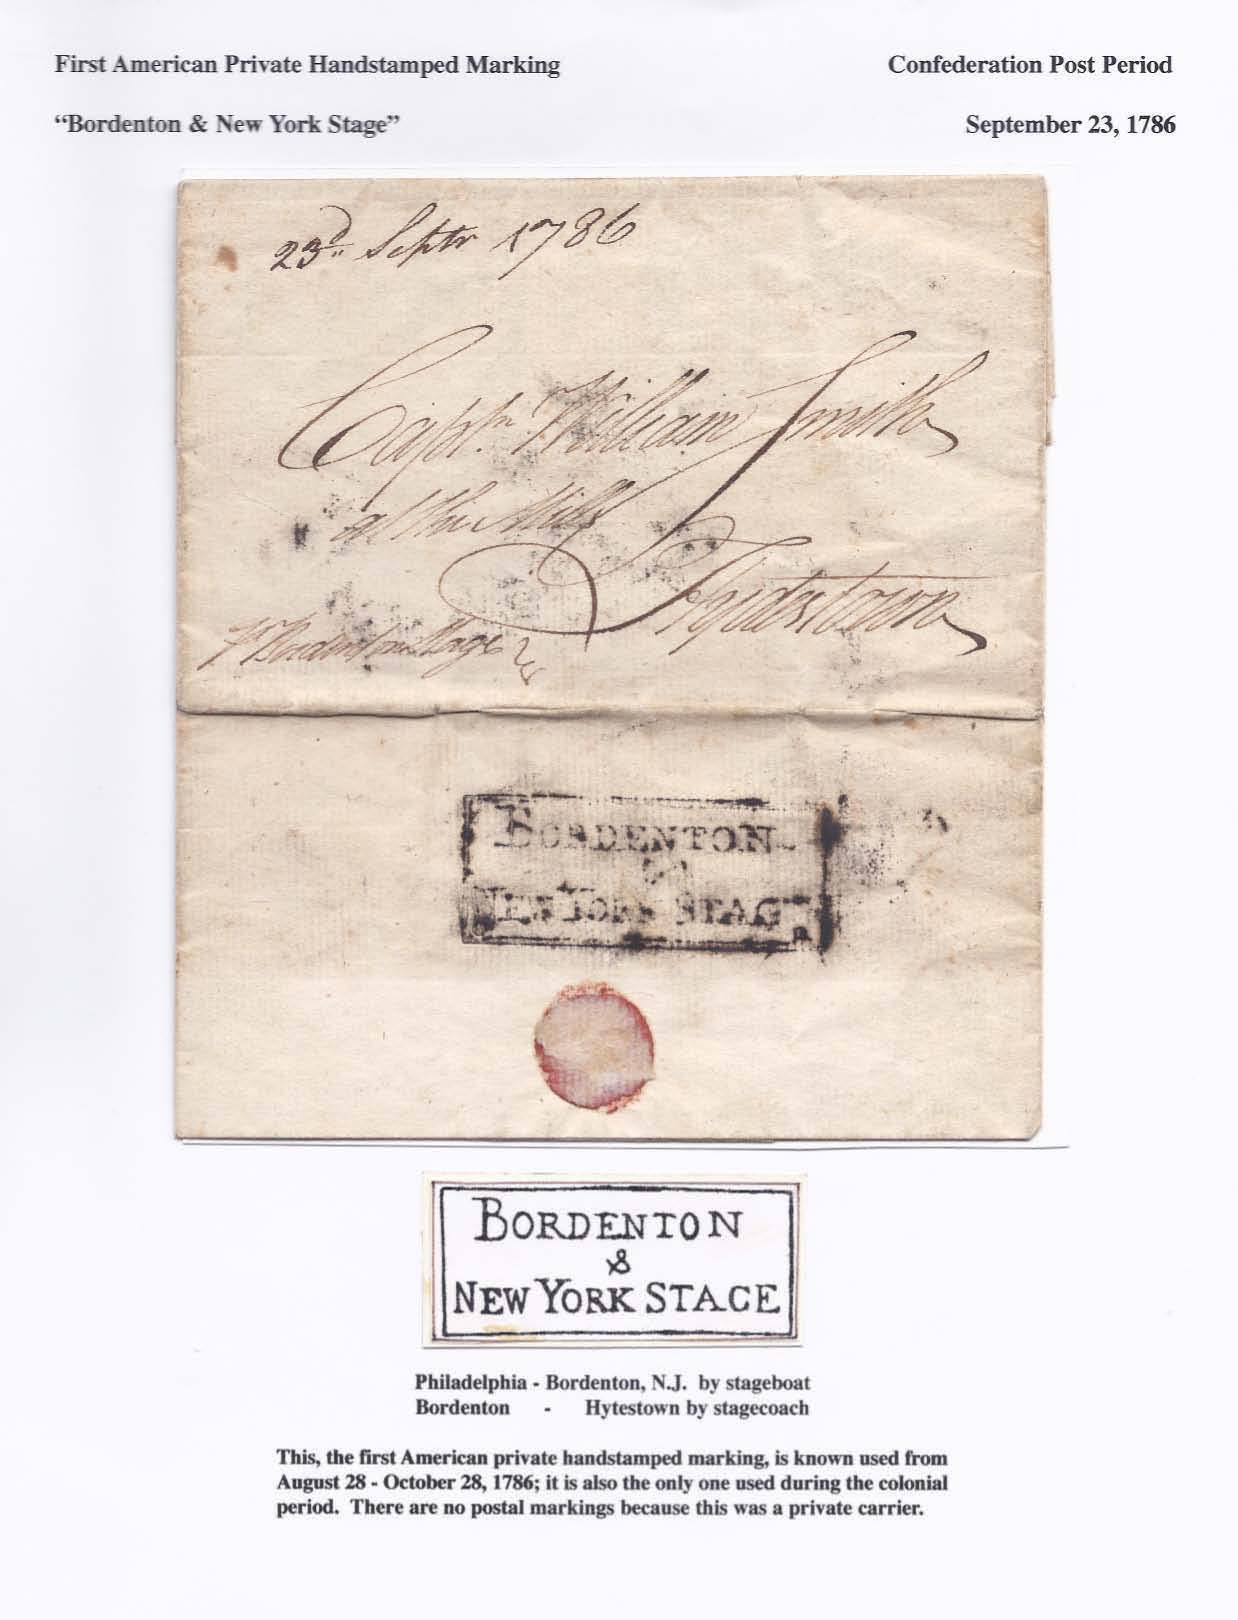 First American Private Handstamped Marking Confederation Post Period
“Bordenton & New York Stage” September 23, 1786
23d. Septr 1786
Captn. William Smith
at the Mills
Hydestown
Pr Bordenton Stage
BORDENTON
&
NEW YORK STAGE
BORDENTON
&
NEW YORK STAGE
Philadelphia - Bordenton, N.J. by stageboat
Bordenton - Hytestown by stagecoach
This, the first American private handstamped marking, is known used from
August 28 - October 28, 1786; it is also the only one used during the colonial
period. There are no postal markings because this was a private carrier.